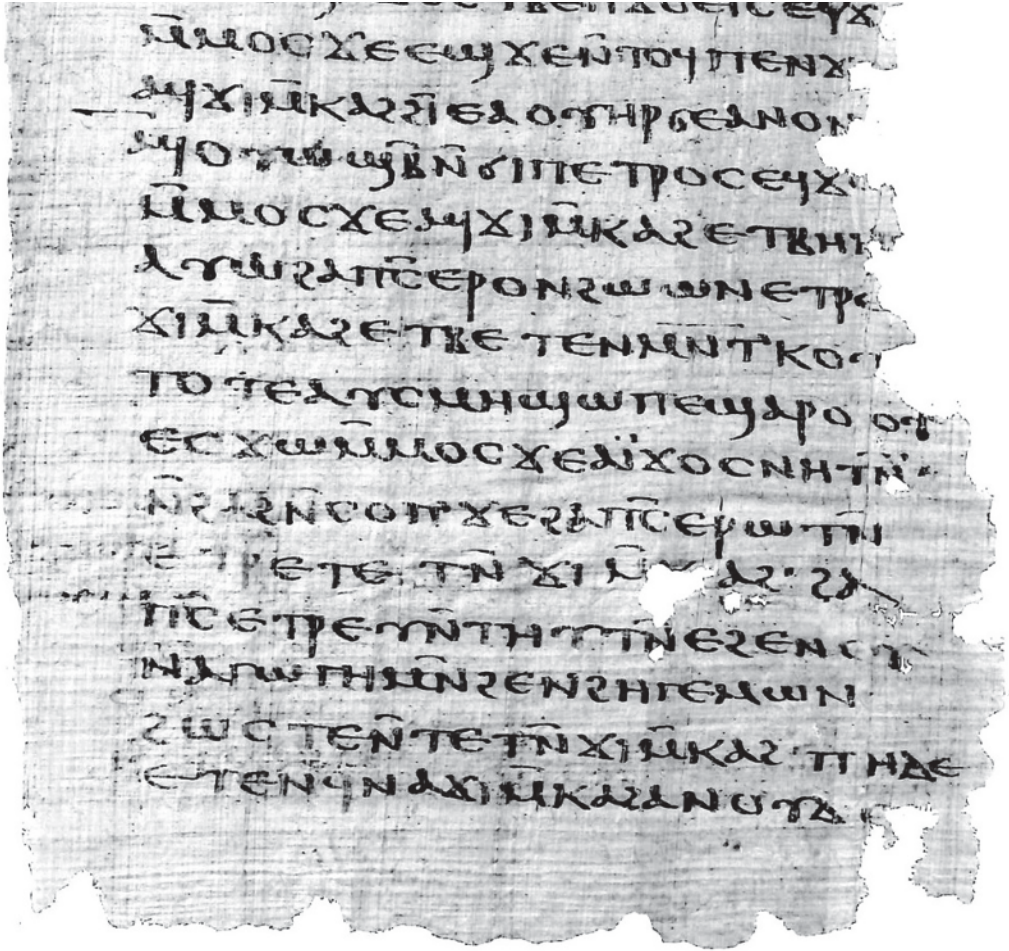 ⲙ̄ⲙⲟⲥϫⲉⲉϣϫⲉⲛ̄ⲧⲟϥⲡⲉⲛϫ
ⲁϥϫⲓⲙ̄ⲕⲁϩϩⲓ̈ⲉⲁⲟⲩⲏⲣϭⲉⲁⲛⲟⲛ
ⲁϥⲟⲩⲱϣⲃ̄ⲛ̄ϭⲓⲡⲉⲧⲣⲟⲥⲉϥϫ
ⲙ̄ⲙⲟⲥϫⲉⲁϥϫⲓⲙ̄ⲕⲁϩⲉⲧⲃⲏⲏ
ⲁⲩⲱϩⲁⲡⲥ̄ⲉⲣⲟⲛϩⲱⲱⲛⲉⲧⲣⲉ
ϫⲓⲙ̄ⲕⲁϩⲉⲧⲃⲉⲧⲉⲛⲙⲛ̄ⲧⲕⲟⲩ
ⲧⲟⲧⲉⲁⲩⲥⲙⲏϣⲱⲡⲉϣⲁⲣⲟⲟⲩ
ⲉⲥϫⲱⲙ̄ⲙⲟⲥϫⲉⲁⲓ̈ϫⲟⲥⲛⲏⲧⲛ̄
ⲛ̄ϩⲁϩⲛ̄ⲥⲟⲡϫⲉϩⲁⲡⲥ̄ⲉⲣⲱⲧⲛ̄
ⲉⲧⲣⲉⲧⲉⲧⲛ̄ϫⲓⲙ̄ⲕⲁϩ·ϩⲁ
ⲡⲥ̄ⲉⲧⲣⲉⲩⲛ̄ⲧⲏⲩⲧⲛ̄ⲉϩⲉⲛⲥⲩ
ⲛⲁⲅⲱⲅⲏⲙⲛ̄ϩⲉⲛϩⲏⲅⲉⲙⲱⲛ
ϩⲱⲥⲧⲉⲛ̄ⲧⲉⲧⲛ̄ϫⲓⲙ̄ⲕⲁϩ·ⲡⲏⲇⲉ
ⲉⲧⲉⲛϥⲛⲁϫⲓⲙ̄ⲕⲁϩⲁⲛⲟⲩⲇⲉ